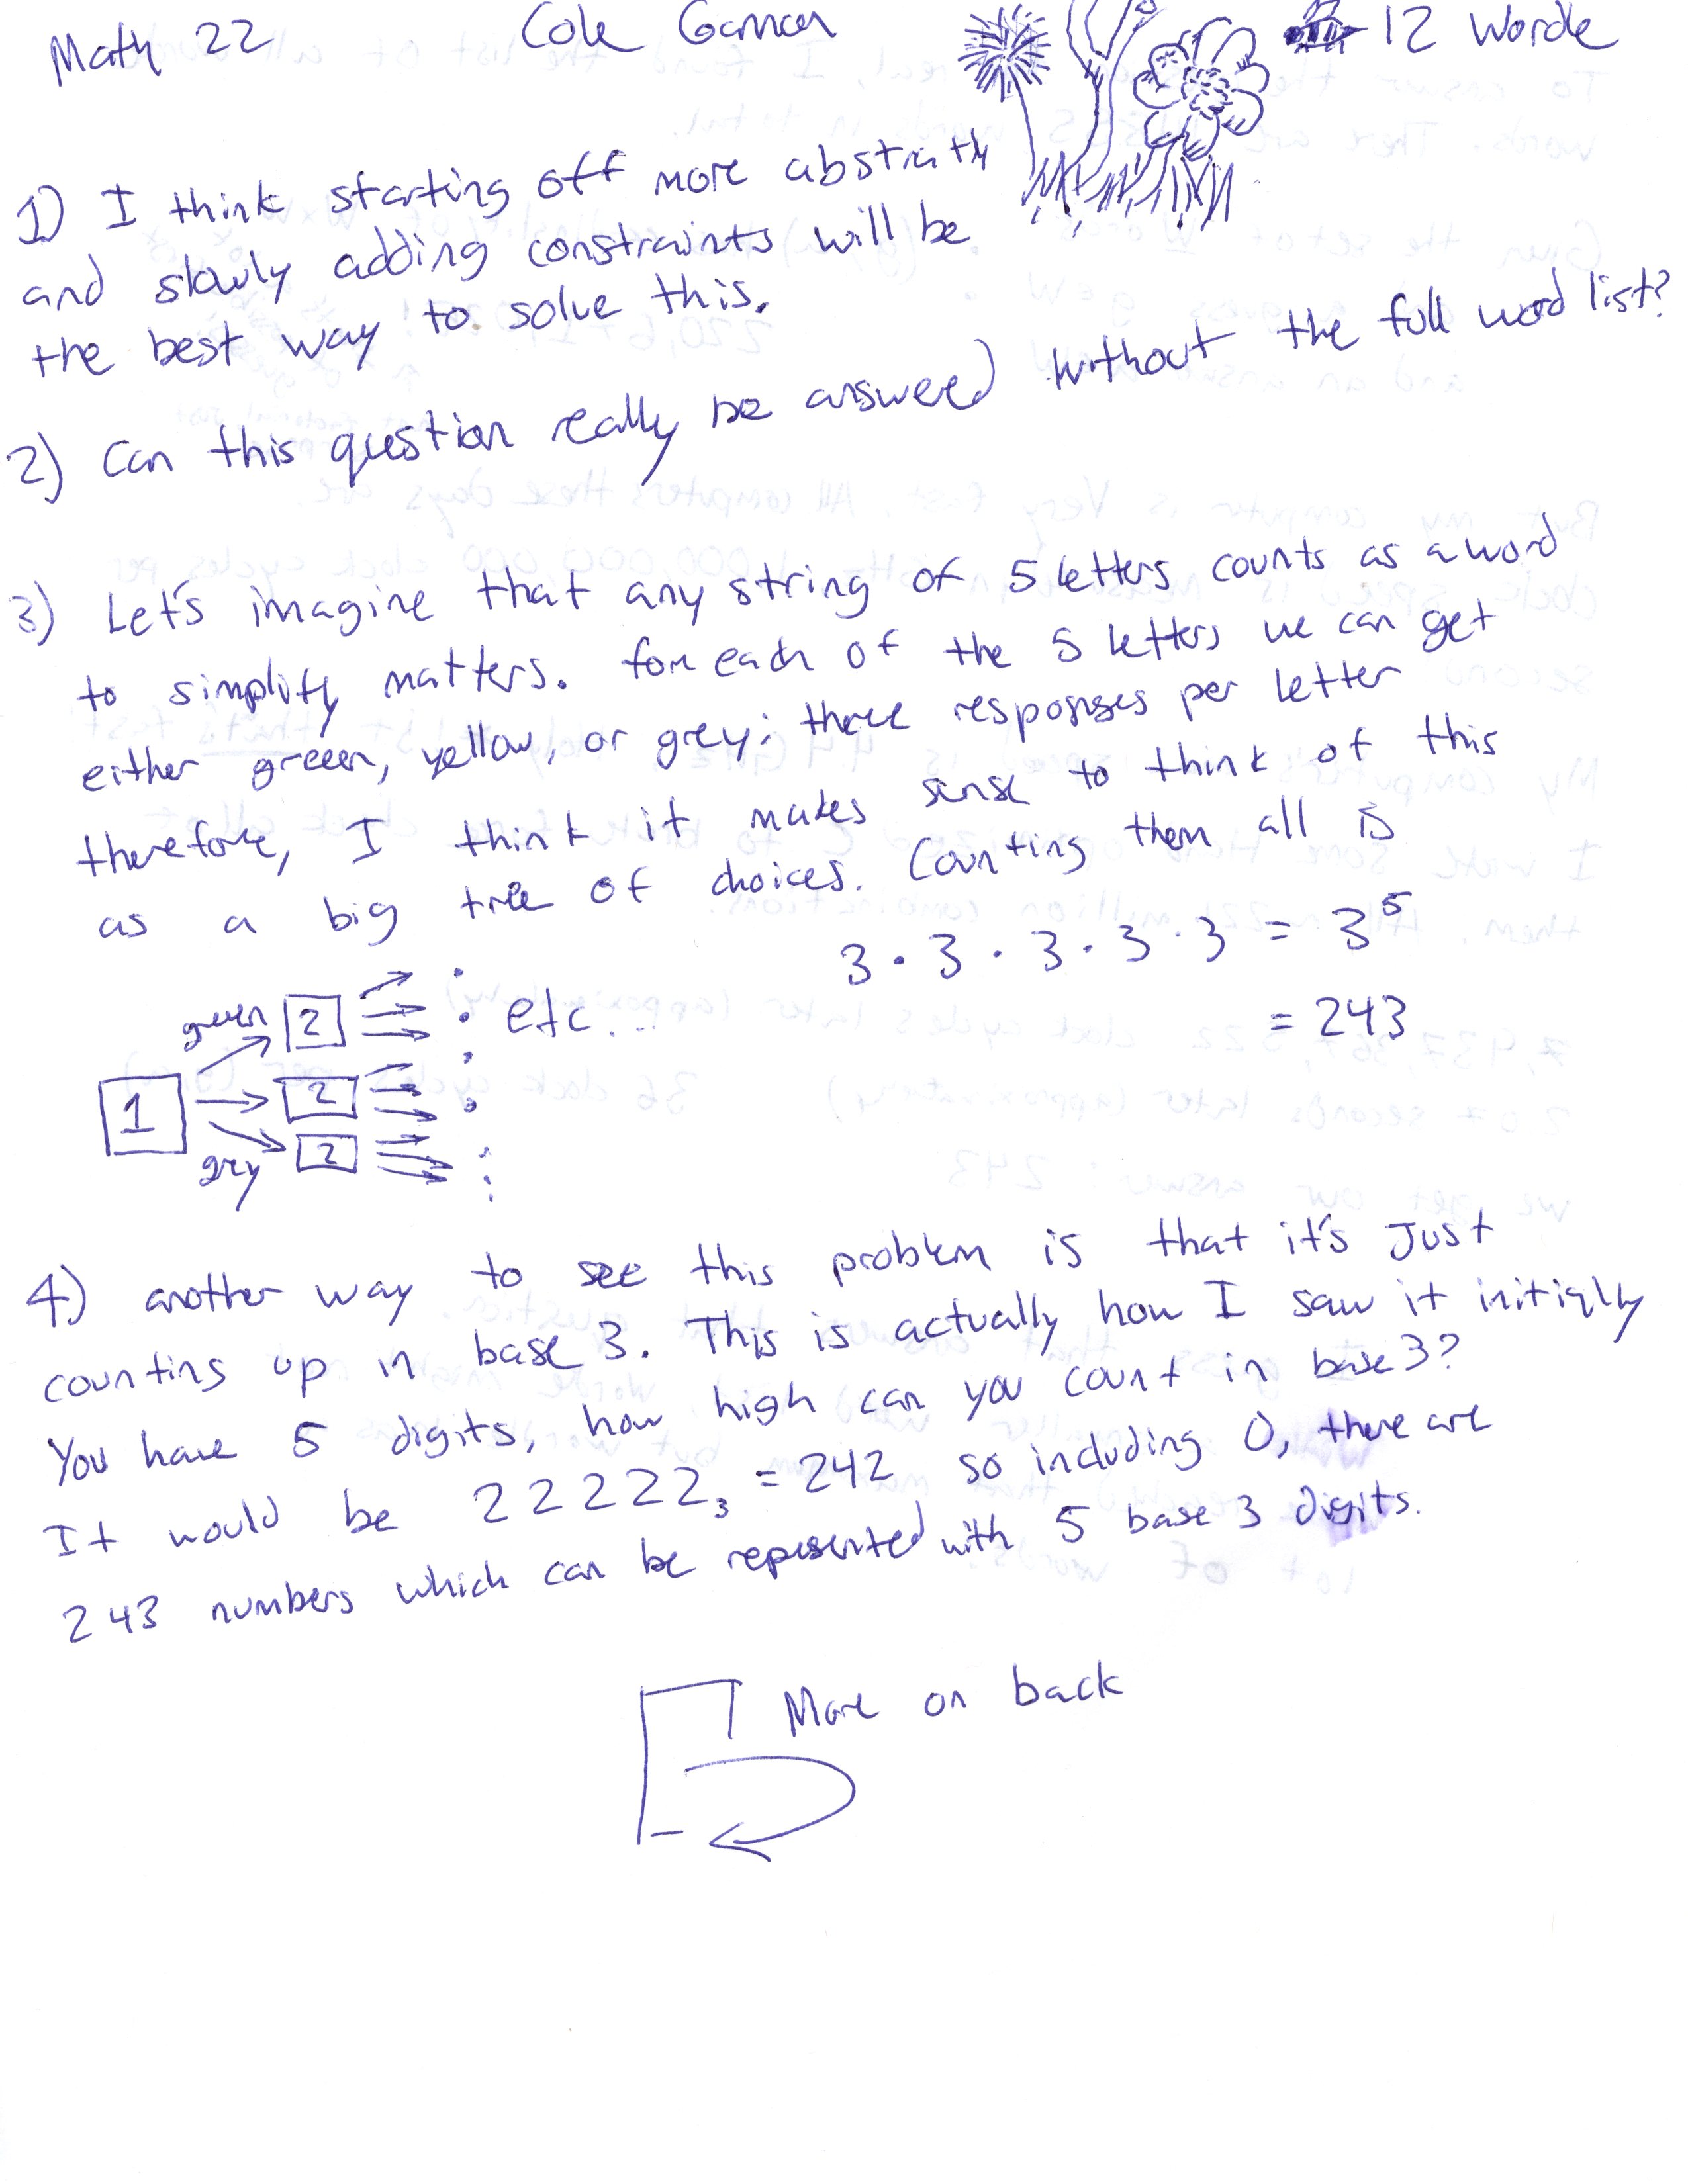 Math 22 Cole 12 Wordle
1) I think starting off more abstractly
and slowly adding constraints will be
the best way to solve this.
2) Can this question really be answered without the full word list?
3) Let's imagine that any string of 5 letters counts as a word
to simplify matters. for each of the 5 letters we can get
either greeen, yellow, or grey; three responses per letter
therefore, I think it makes sense to think of this
as a big tree of choices. Counting them all is
3 · 3 · 3 · 3 · 3 = 3⁵
= 243
green 2 etc...
1 2
grey 2
4) another way to see this problem is that it's just
counting up in base 3. This is actually how I saw it initially
You have 5 digits, how high can you count in base 3?
It would be 22222₃ = 242 so including 0, there are
243 numbers which can be represented with 5 base 3 digits.
More on back